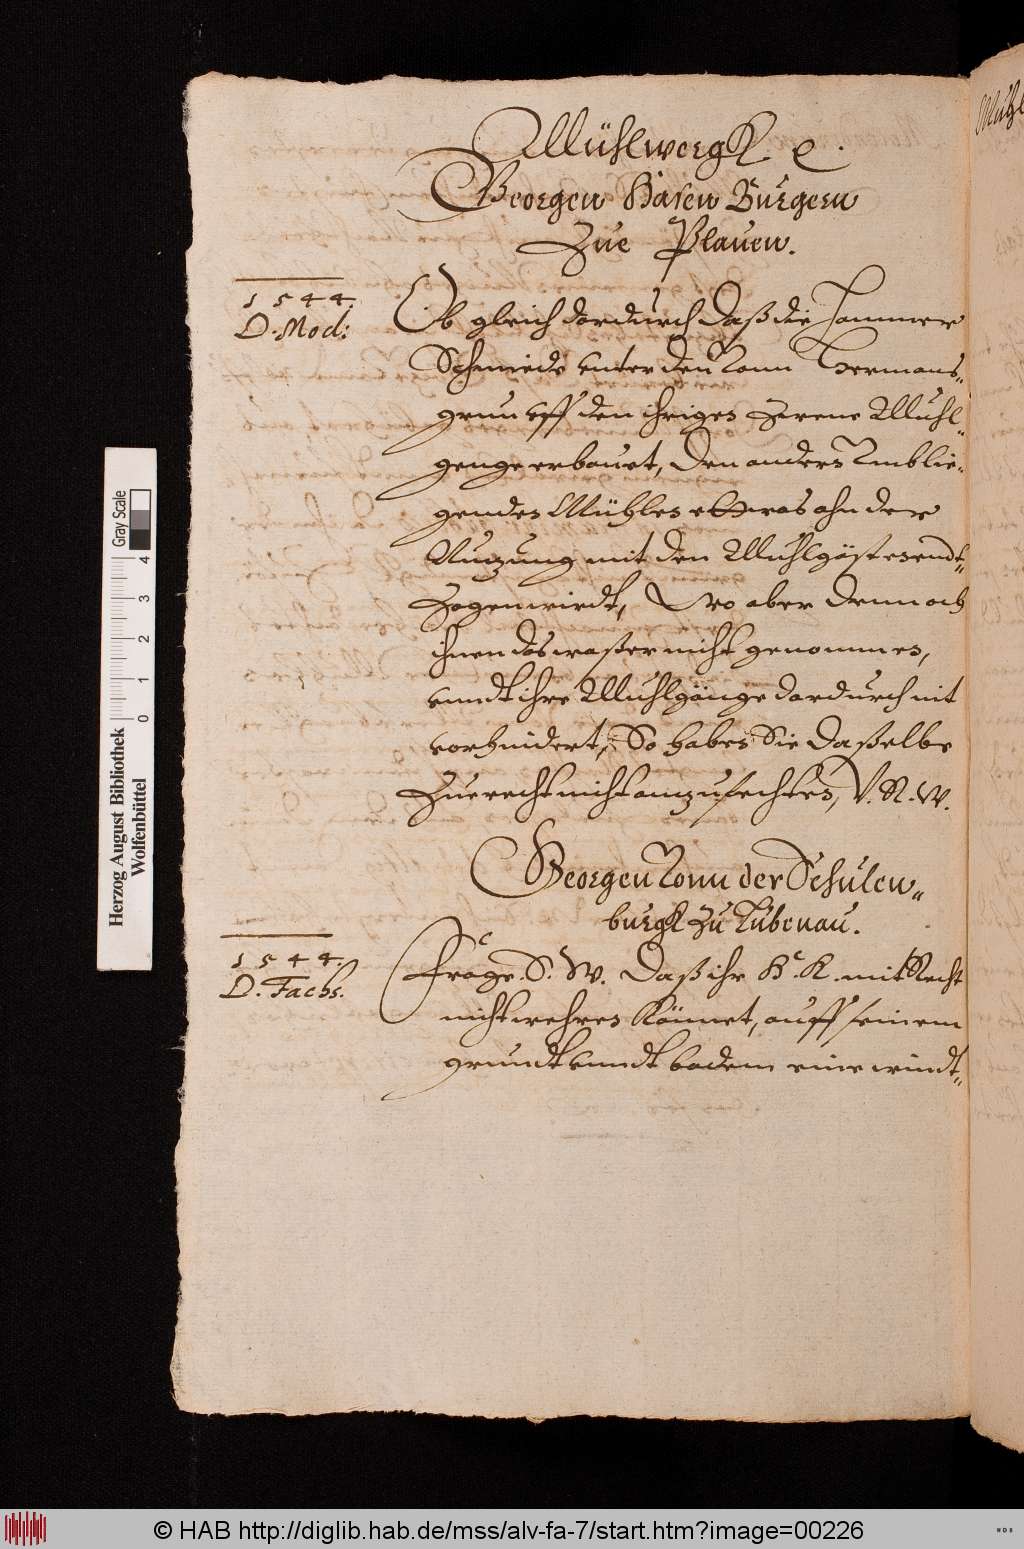 Mühlwergk e.
Georgen Hasen Burgern
Zue Plauen.
1544.
D. Mod:
Ob gleich dardurch daß die Hammer
Schmiede unter den Vonn Hermans-
grun uff den ihrigen Zwene Muhl-
genge erbauet, den andern Vmblie-
genden Mühlen ettwas ahn der
Nuzung mit den Muhlgästen endt-
Zogen wirdt, Wo aber dennoch
ihnen das wasser nicht genommen,
unndt ihre Muhlgänge dardurch nit
vorhindert, So haben Sie daßelbe
Zue recht nicht anzufechten, V. R. W.
Georgen Vonn der Schulen-
burgk Zu Lübenau.
1544.
D. Fachs.
Frage. S. W. Daß ihr H. K. mit Recht
nicht wehren Könnet, auff seinem
grundt unndt bodem eine windt-
Mühl
Herzog August Bibliothek
Wolfenbüttel
0 1 2 3 4
Gray Scale
© HAB http://diglib.hab.de/mss/alv-fa-7/start.htm?image=00226